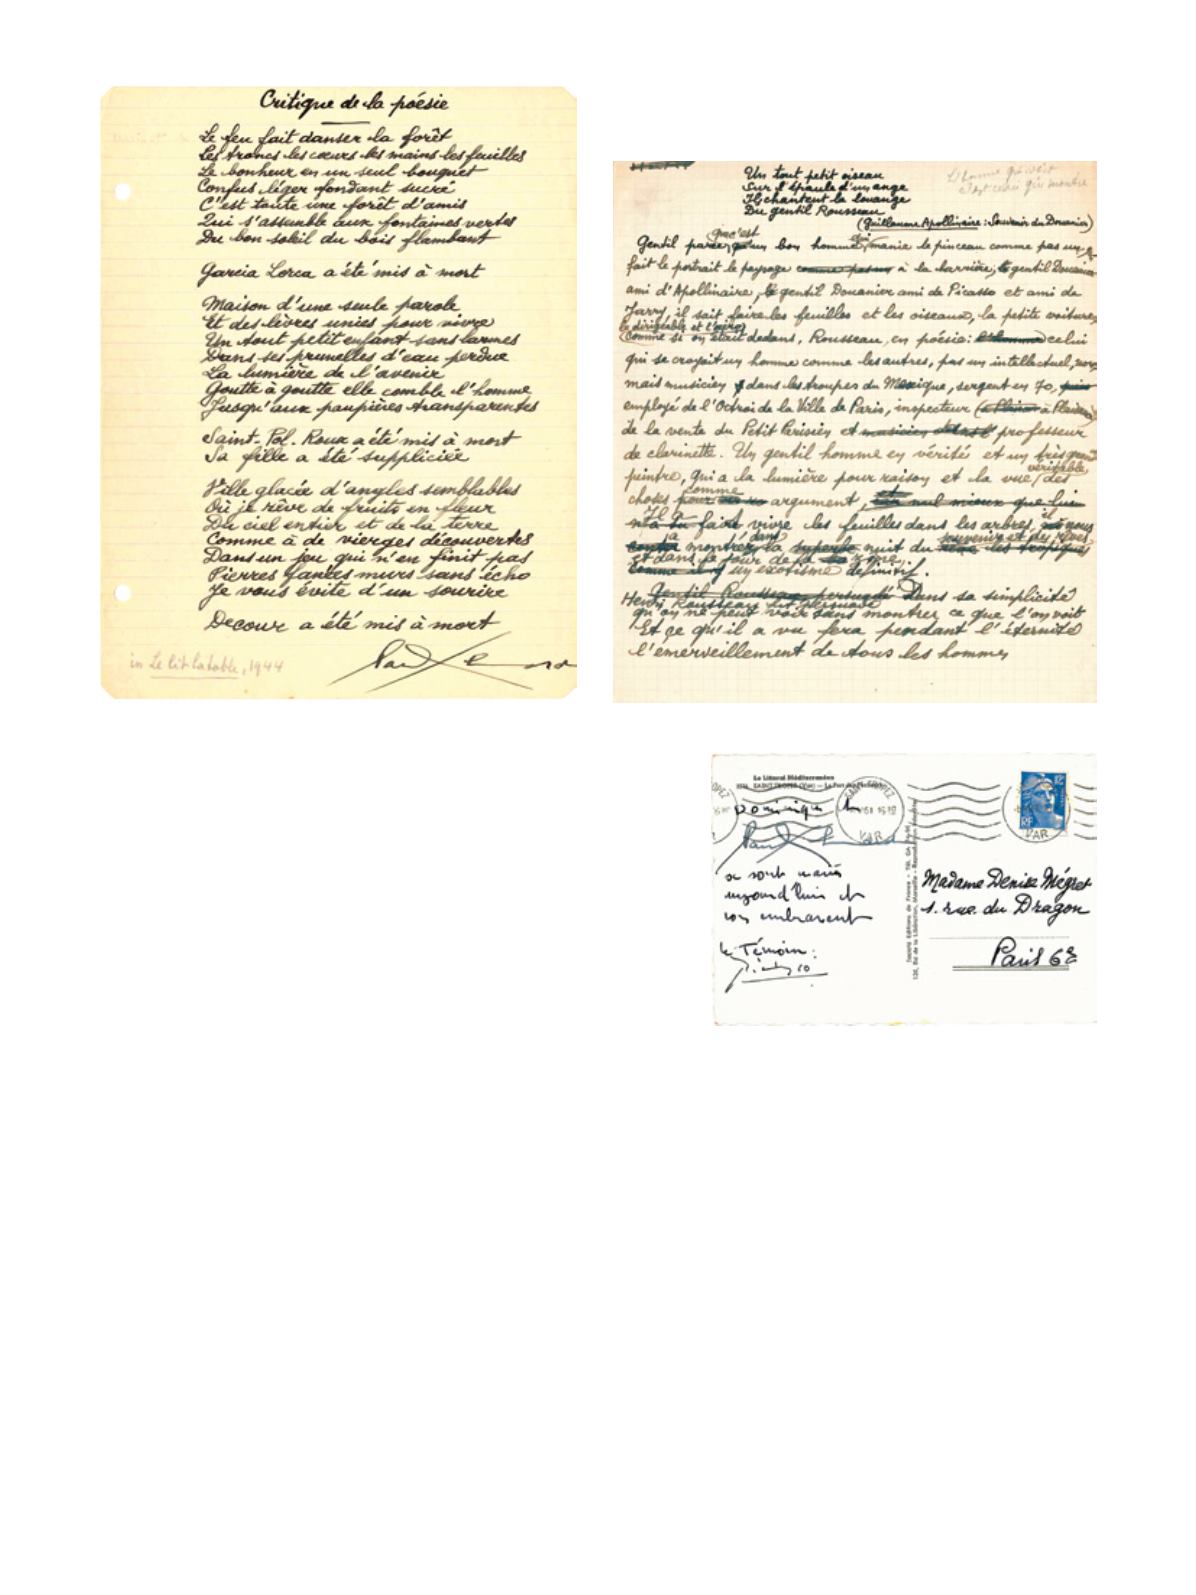 Critique de la poésie
Le feu fait danser la forêt
Les troncs les cœurs les mains les feuilles
Le bonheur en un seul bouquet
Confus léger fondant sucré
C'est toute une forêt d'amis
Qui s'assemble aux fontaines vertes
Du bon soleil du bois flambant
Garcia Lorca a été mis à mort
Maison d'une seule parole
Et des lèvres unies pour vivre
Un tout petit enfant sans larmes
Dans ses prunelles d'eau perdue
La lumière de l'avenir
Goutte à goutte elle comble l'homme
Jusqu'aux paupières transparentes
Saint-Pol-Roux a été mis à mort
Sa fille a été suppliciée
Ville glacée d'angles semblables
Où je rêve de fruits en fleur
Du ciel entier et de la terre
Comme à de vierges découvertes
Dans un jeu qui n'en finit pas
Pierres fanées murs sans écho
Je vous évite d'un sourire
Decour a été mis à mort
in Le lit la table, 1944
Un tout petit oiseau
Sur l'épaule d'un ange
Ils chantent la louange
Du gentil Rousseau
L'homme qui voit
c'est celui qui montre
(Guillaume Apollinaire : Souvenir du Douanier)
que c'est
Gentil parce qu'un bon homme qui manie le pinceau comme pas un,
fait le portrait le paysage comme pas un à la barrière, le gentil Douanier
ami d'Apollinaire, le gentil Douanier ami de Picasso et ami de
Jarry, il sait faire les feuilles et les oiseaux, la petite voiture,
le dirigeable et l'aéro,
comme si on était dedans, Rousseau, en poésie : l'homme celui
qui se croyait un homme comme les autres, pas un intellectuel, non
mais musicien dans les troupes du Mexique, sergent en 70, puis
employé de l'Octroi de la Ville de Paris, inspecteur à Plaisance
de la vente du Petit Parisien et musicien professeur
de clarinette. Un gentil homme en vérité et un très grand
véritable
peintre, qui a la lumière pour raison et la vue des
comme
choses pour argument, nul mieux que lui
Il
n'a fait vivre les feuilles dans les arbres, il nous
a dans souvenir et du rêve
montrer la superbe nuit du rêve les tropiques
et dans le jour de la
comme un exotisme définitif.
Gentil Rousseau persuadé Dans sa simplicité
Henri Rousseau persuadé
qu'on ne peut voir sans montrer ce que l'on voit
Et ce qu'il a vu fera pendant l'éternité
l'émerveillement de tous les hommes
Le Littoral Méditerranéen
SAINT-TROPEZ (Var) — Le Port des Pêcheurs
SAINT-TROPEZ
VAR
12F
RF
VAR
Dominique et
Paul Eluard
se sont mariés
aujourd'hui et
vous embrassent
le Témoin :
Picasso
Madame Denise Mégret
1. rue du Dragon
Paris 6e